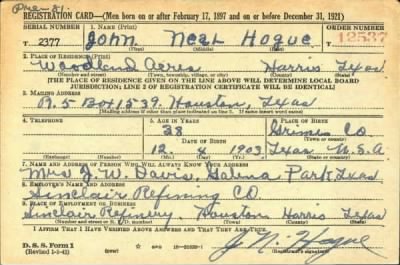 REGISTRATION CARD—(Men born on or after February 17, 1897 and on or before December 31, 1921)
SERIAL NUMBER 1. NAME (Print) ORDER NUMBER
T 2377 John Neal Hogue 12537
(First) (Middle) (Last)
2. PLACE OF RESIDENCE (Print)
Woodland Acres Harris Texas
(Number and street) (Town, township, village, or city) (County) (State)
[THE PLACE OF RESIDENCE GIVEN ON THE LINE ABOVE WILL DETERMINE LOCAL BOARD
JURISDICTION; LINE 2 OF REGISTRATION CERTIFICATE WILL BE IDENTICAL]
3. MAILING ADDRESS
Rt. 5 Box 1539. Houston, Texas
[Mailing address if other than place indicated on line 2. If same insert word same]
4. TELEPHONE 5. AGE IN YEARS PLACE OF BIRTH
38 Grimes Co
DATE OF BIRTH (Town or county)
12. 4 1903 Texas U.S.A
(Exchange) (Number) (Mo.) (Day) (Yr.) (State or country)
7. NAME AND ADDRESS OF PERSON WHO WILL ALWAYS KNOW YOUR ADDRESS
Mrs J. W. Davis, Galena Park Texas
8. EMPLOYER'S NAME AND ADDRESS
Sinclair Refining CO.
9. PLACE OF EMPLOYMENT OR BUSINESS
Sinclair Refinery. Houston Harris Texas
(Number and street or R. F. D. number) (Town) (County) (State)
I AFFIRM THAT I HAVE VERIFIED ABOVE ANSWERS AND THAT THEY ARE TRUE.
D. S. S. Form 1
(Revised 1-1-42) J. N. Hogue